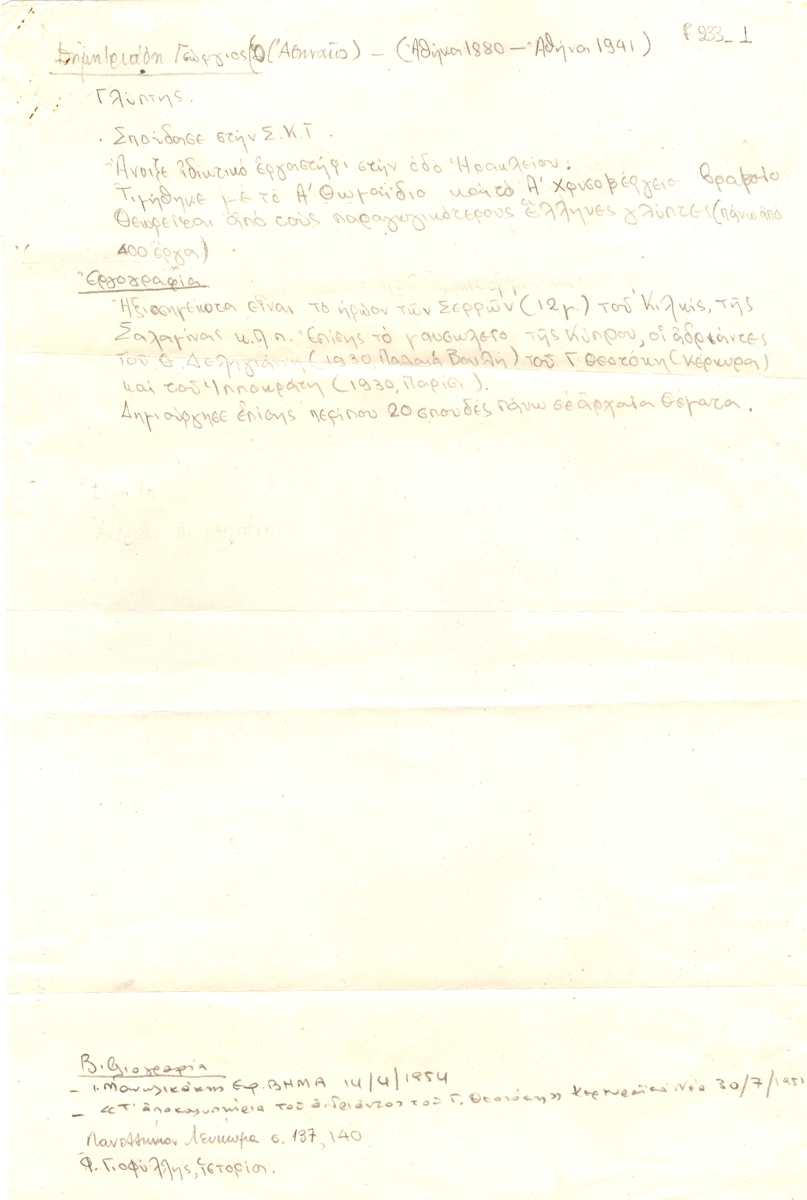 Δημητριάδη Γεώργιος (Ὁ Ἀθηναῖος) – (Ἀθήνα 1880 – Ἀθήνα 1941) F 233_1
Γλύπτης.
. Σπούδασε στήν Σ.Κ.Τ.
Ἄνοιξε ἰδιωτικό ἐργαστήρι στήν ὁδό Ἡρακλείου.
Τιμήθηκε μέ τό Α' Θωμαΐδιο καί τό Α' Χρυσοβέργειο Βραβεῖο
Θεωρεῖται ἀπό τούς παραγωγικότερους Ἕλληνες γλύπτες (πάνω ἀπό
400 ἔργα)
Ἐργογραφία
Ἀξιοσημείωτα εἶναι τό ἡρῶον τῶν Σερρῶν (12μ.) τοῦ Κιλκίς, τῆς
Σαλαμίνας κ.λ.π. Ἐπίσης τό μαυσωλεῖο τῆς Κύπρου, οἱ ἀδριάντες
τοῦ Θ. Δεληγιάννη (1930, Παλαιά Βουλή) τοῦ Γ. Θεοτόκη (Κέρκυρα)
καί τοῦ Ἱπποκράτη (1930, Παρίσι).
Δημιούργησε ἐπίσης περίπου 20 σπουδές πάνω σέ ἀρχαῖα θέματα.
Βιβλιογραφία
– Ι. Μανωλικάκης Εφ. ΒΗΜΑ 14/4/1954
– «Τ' ἀποκαλυπτήρια τοῦ ἀνδριάντος τοῦ Γ. Θεοτόκη» Κερκυραϊκά Νέα 30/7/1951
Πανεθνικόν Λεύκωμα σ. 137, 140
Φ. Γιοφύλλης, ἱστορία.